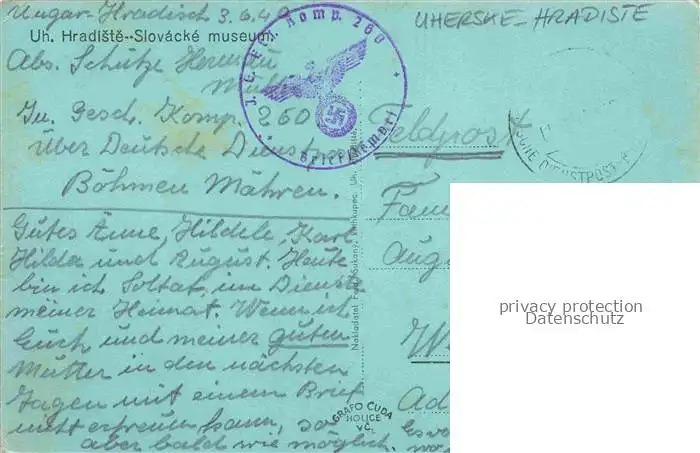 Ungar-Hradisch 3.6.40
UHERSKE-HRADISTE
Uh. Hradiště--Slovácké museum.
Abs. Schütze Hermann
In. Gesch. Komp. 260
Über Deutsche Dienstpost
Böhmen Mähren.
Komp. 260
Briefstempel
DIENSTPOST
Feldpost
Gutes Änne, Hildele, Karl
Hilda und August. Heute
bin ich Soltat, im Dienste
meiner Heimat. Wenn ich
Euch und meiner guten
Mutter in den nächsten
Tagen mit einem Brief
nicht erfreuen kann, so
aber bald wie möglich.
Fam
Aug
W
Ad
Es
GRAFO ČUDA
HOLICE
VČ.
privacy protection
Datenschutz